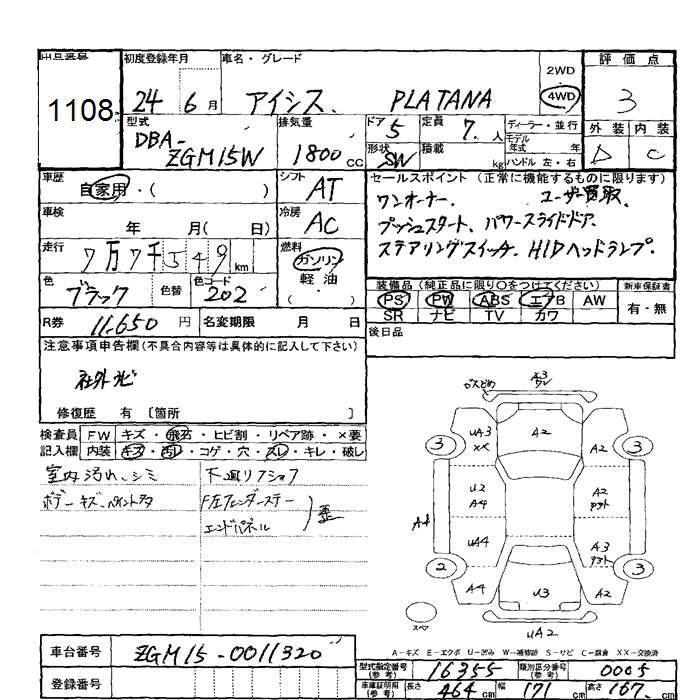 出品番号
1108
初度登録年月
24年 6月
車名・グレード
アイシス PLATANA
2WD
4WD
評価点
3
型式
DBA-
ZGM15W
排気量
1800cc
ドア
5
形状
SW
定員
7.人
積載
kg
ディーラー・並行
モデル年式 年
ハンドル 左・右
外装 内装
D C
車歴
自家用・( )
シフト
AT
車検
年 月( 日)
冷房
AC
走行
7万7千549km
燃料
ガソリン
軽・油
色
ブラック
色替
色コード
202
R券
11,650円
名変期限 月 日
セールスポイント(正常に機能するものに限ります)
ワンオーナー. ユーザー買取
プッシュスタート. パワースライドドア.
ステアリングスイッチ. HIDヘッドランプ.
装備品(純正品に限り○をつけてください)
新車保証書
PS PW ABS エアB AW
有・無
SR ナビ TV カワ
後日品
注意事項申告欄(不具合内容等は具体的に記入して下さい)
社外ナビ
修復歴 有 〔箇所 〕
検査員 FW キズ・飛石・ヒビ割・リペア跡・×要
記入欄 内装 キズ・汚レ・コゲ・穴・スレ・キレ・破レ
室内汚れ、シミ
ボデーキズ、ペイントタッチ
下廻リフショク
F左フェンダーステー
エンドパネル
歪
ガスどめ
A3
ワレ
3
UA3
XX
A2
A2
3
U2
A4
A2
A4
UA4
A3
2
A4
U3
A2
3
スペア
UA2
A-キズ E-エクボ U-凹み W-補修跡 S-サビ C-腐食 XX-交換済
車台番号
ZGM15-0011320
登録番号
型式指定番号(参考)
16355
類別区分番号(参考)
0065
車庫証明用(参考)
長さ 464cm
幅 171cm
高さ 167cm